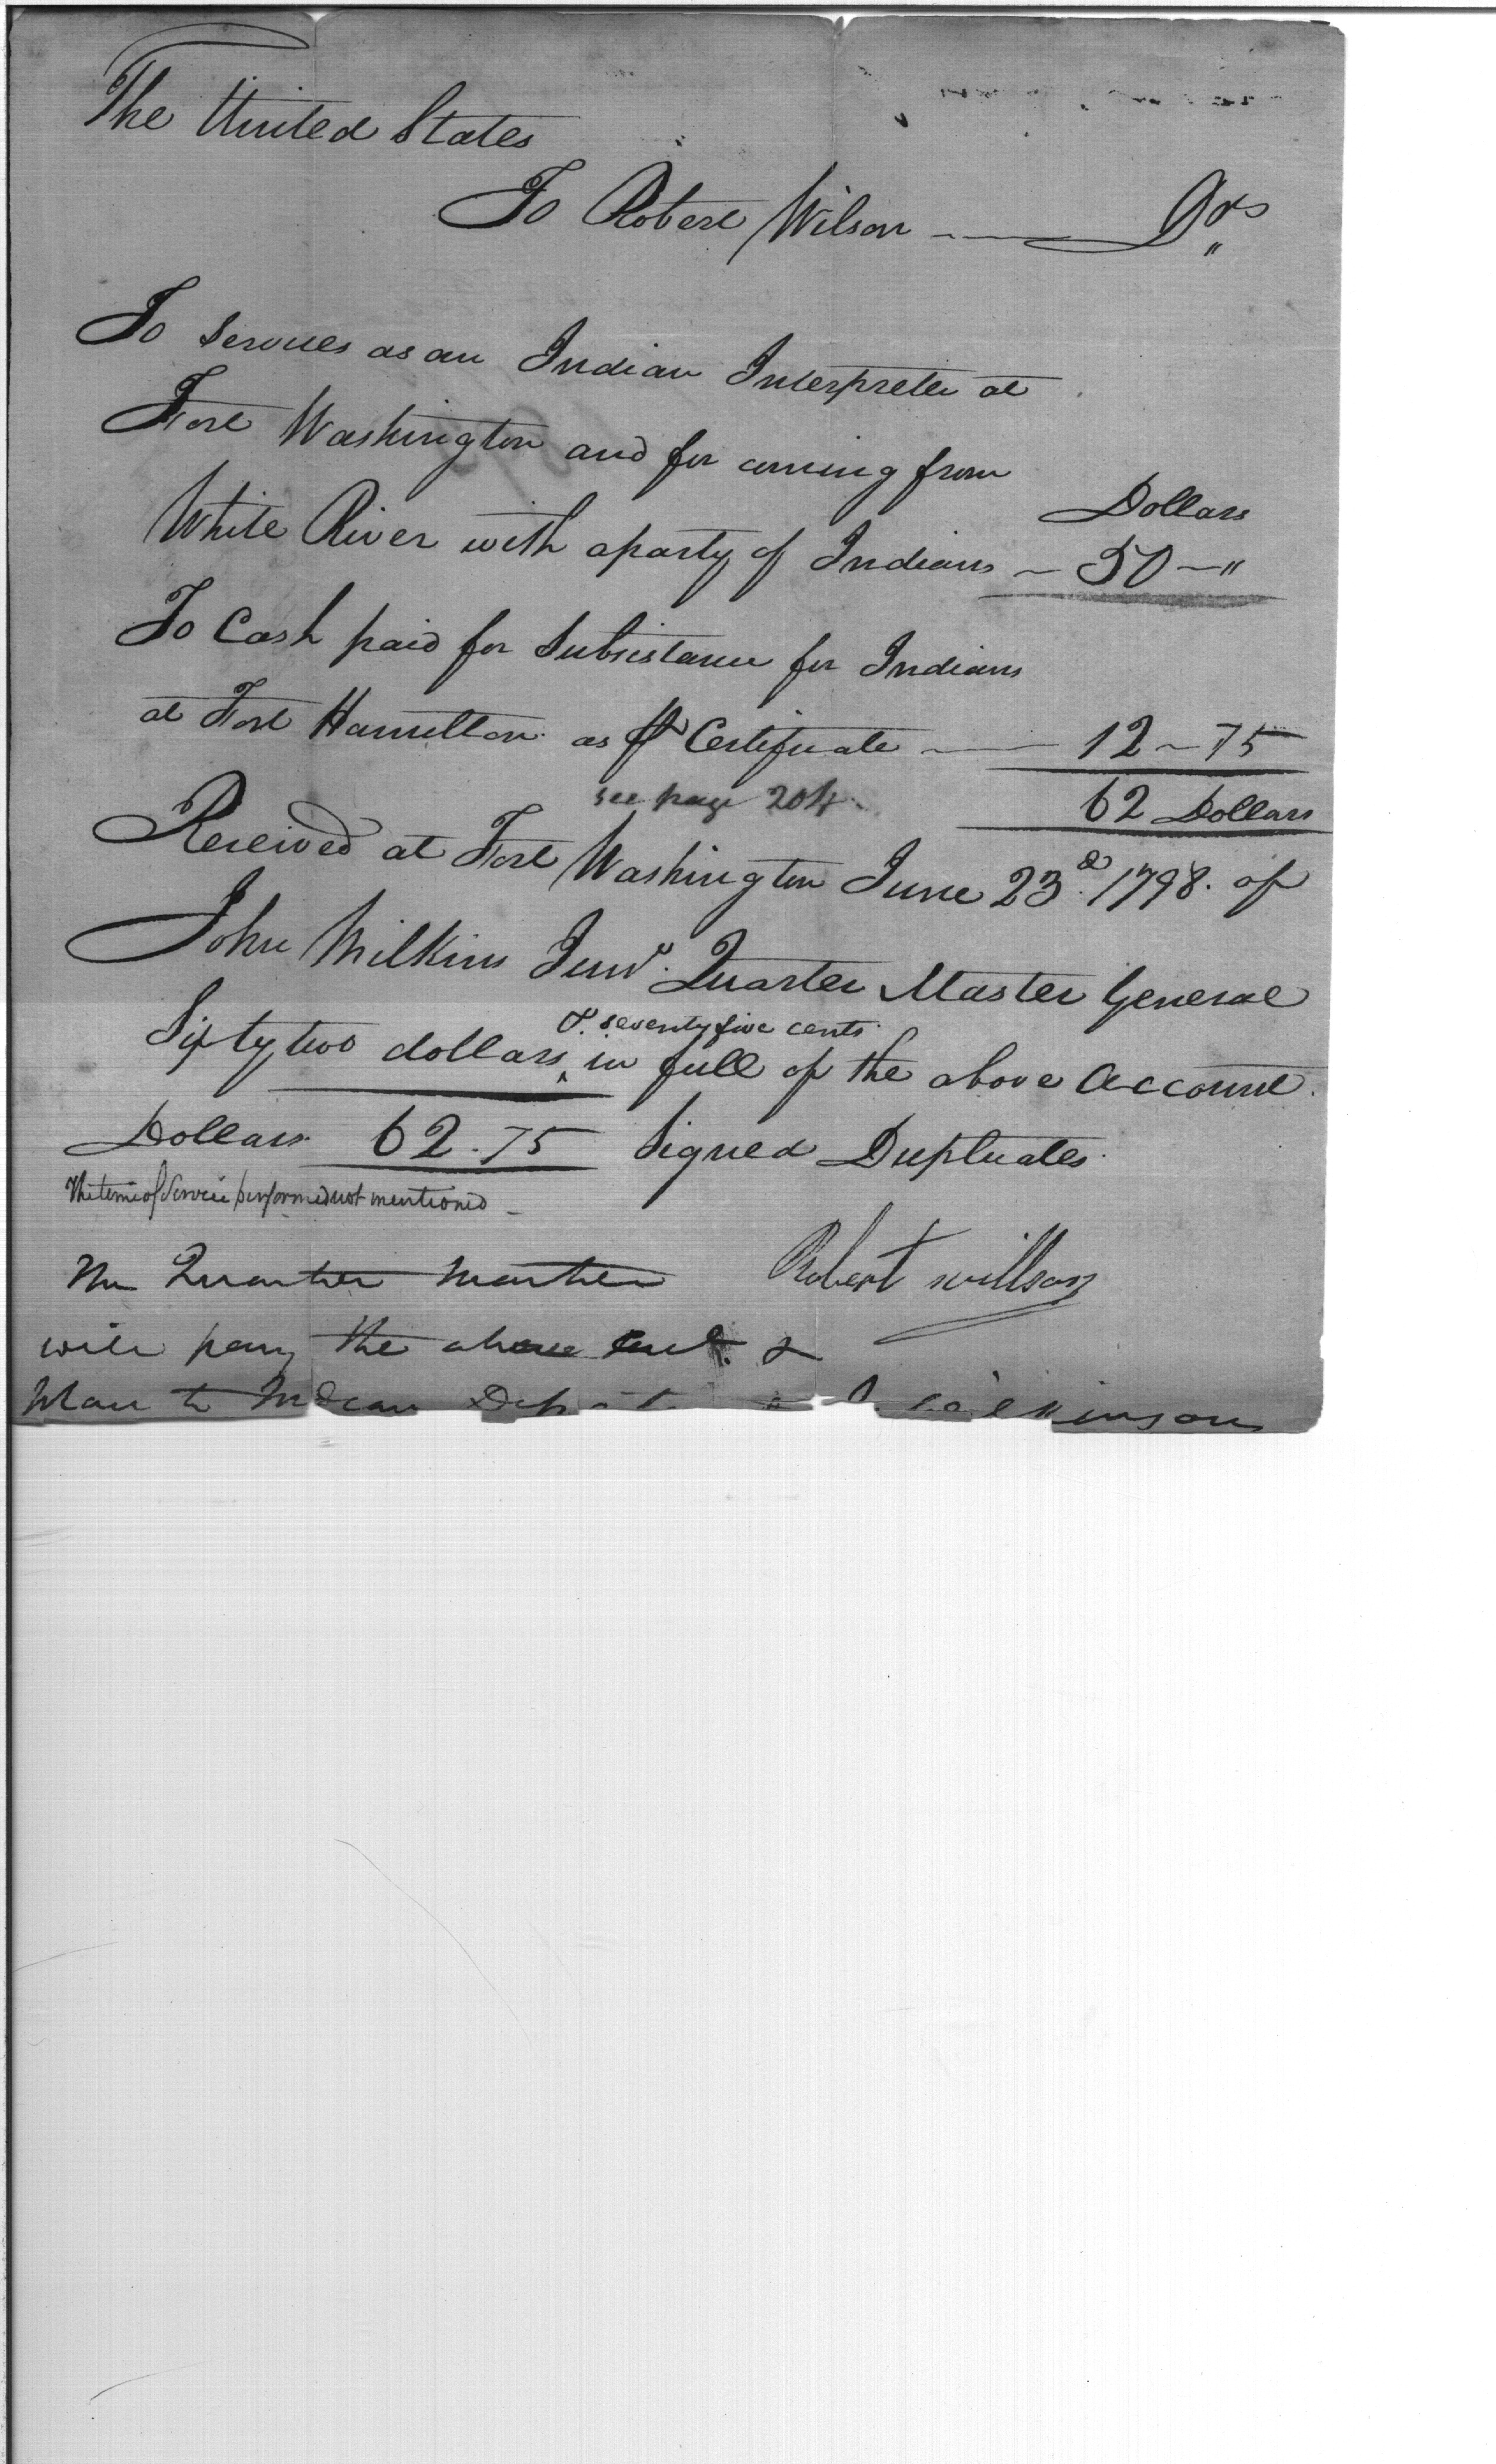 The United States
To Robert Wilson — Drs
To Services as an Indian Interpreter at
Fort Washington and for coming from
Dollars
White River with a party of Indians — 50 — "
To Cash paid for Subsistance for Indians
at Fort Hamilton as ⅌ Certificate — 12 — 75
see page 204
62 Dollars
Received at Fort Washington June 23d. 1798. of
John Wilkins Junr. Quarter Master General
&. seventy five cents
Sixty two dollars ‸ in full of the above Account.
Dollars 62.75 Signed Duplicates
The time of Service performed not mentioned —
Robert willson
The Quarter Master
will pay the above &
to Indian Wilkinson